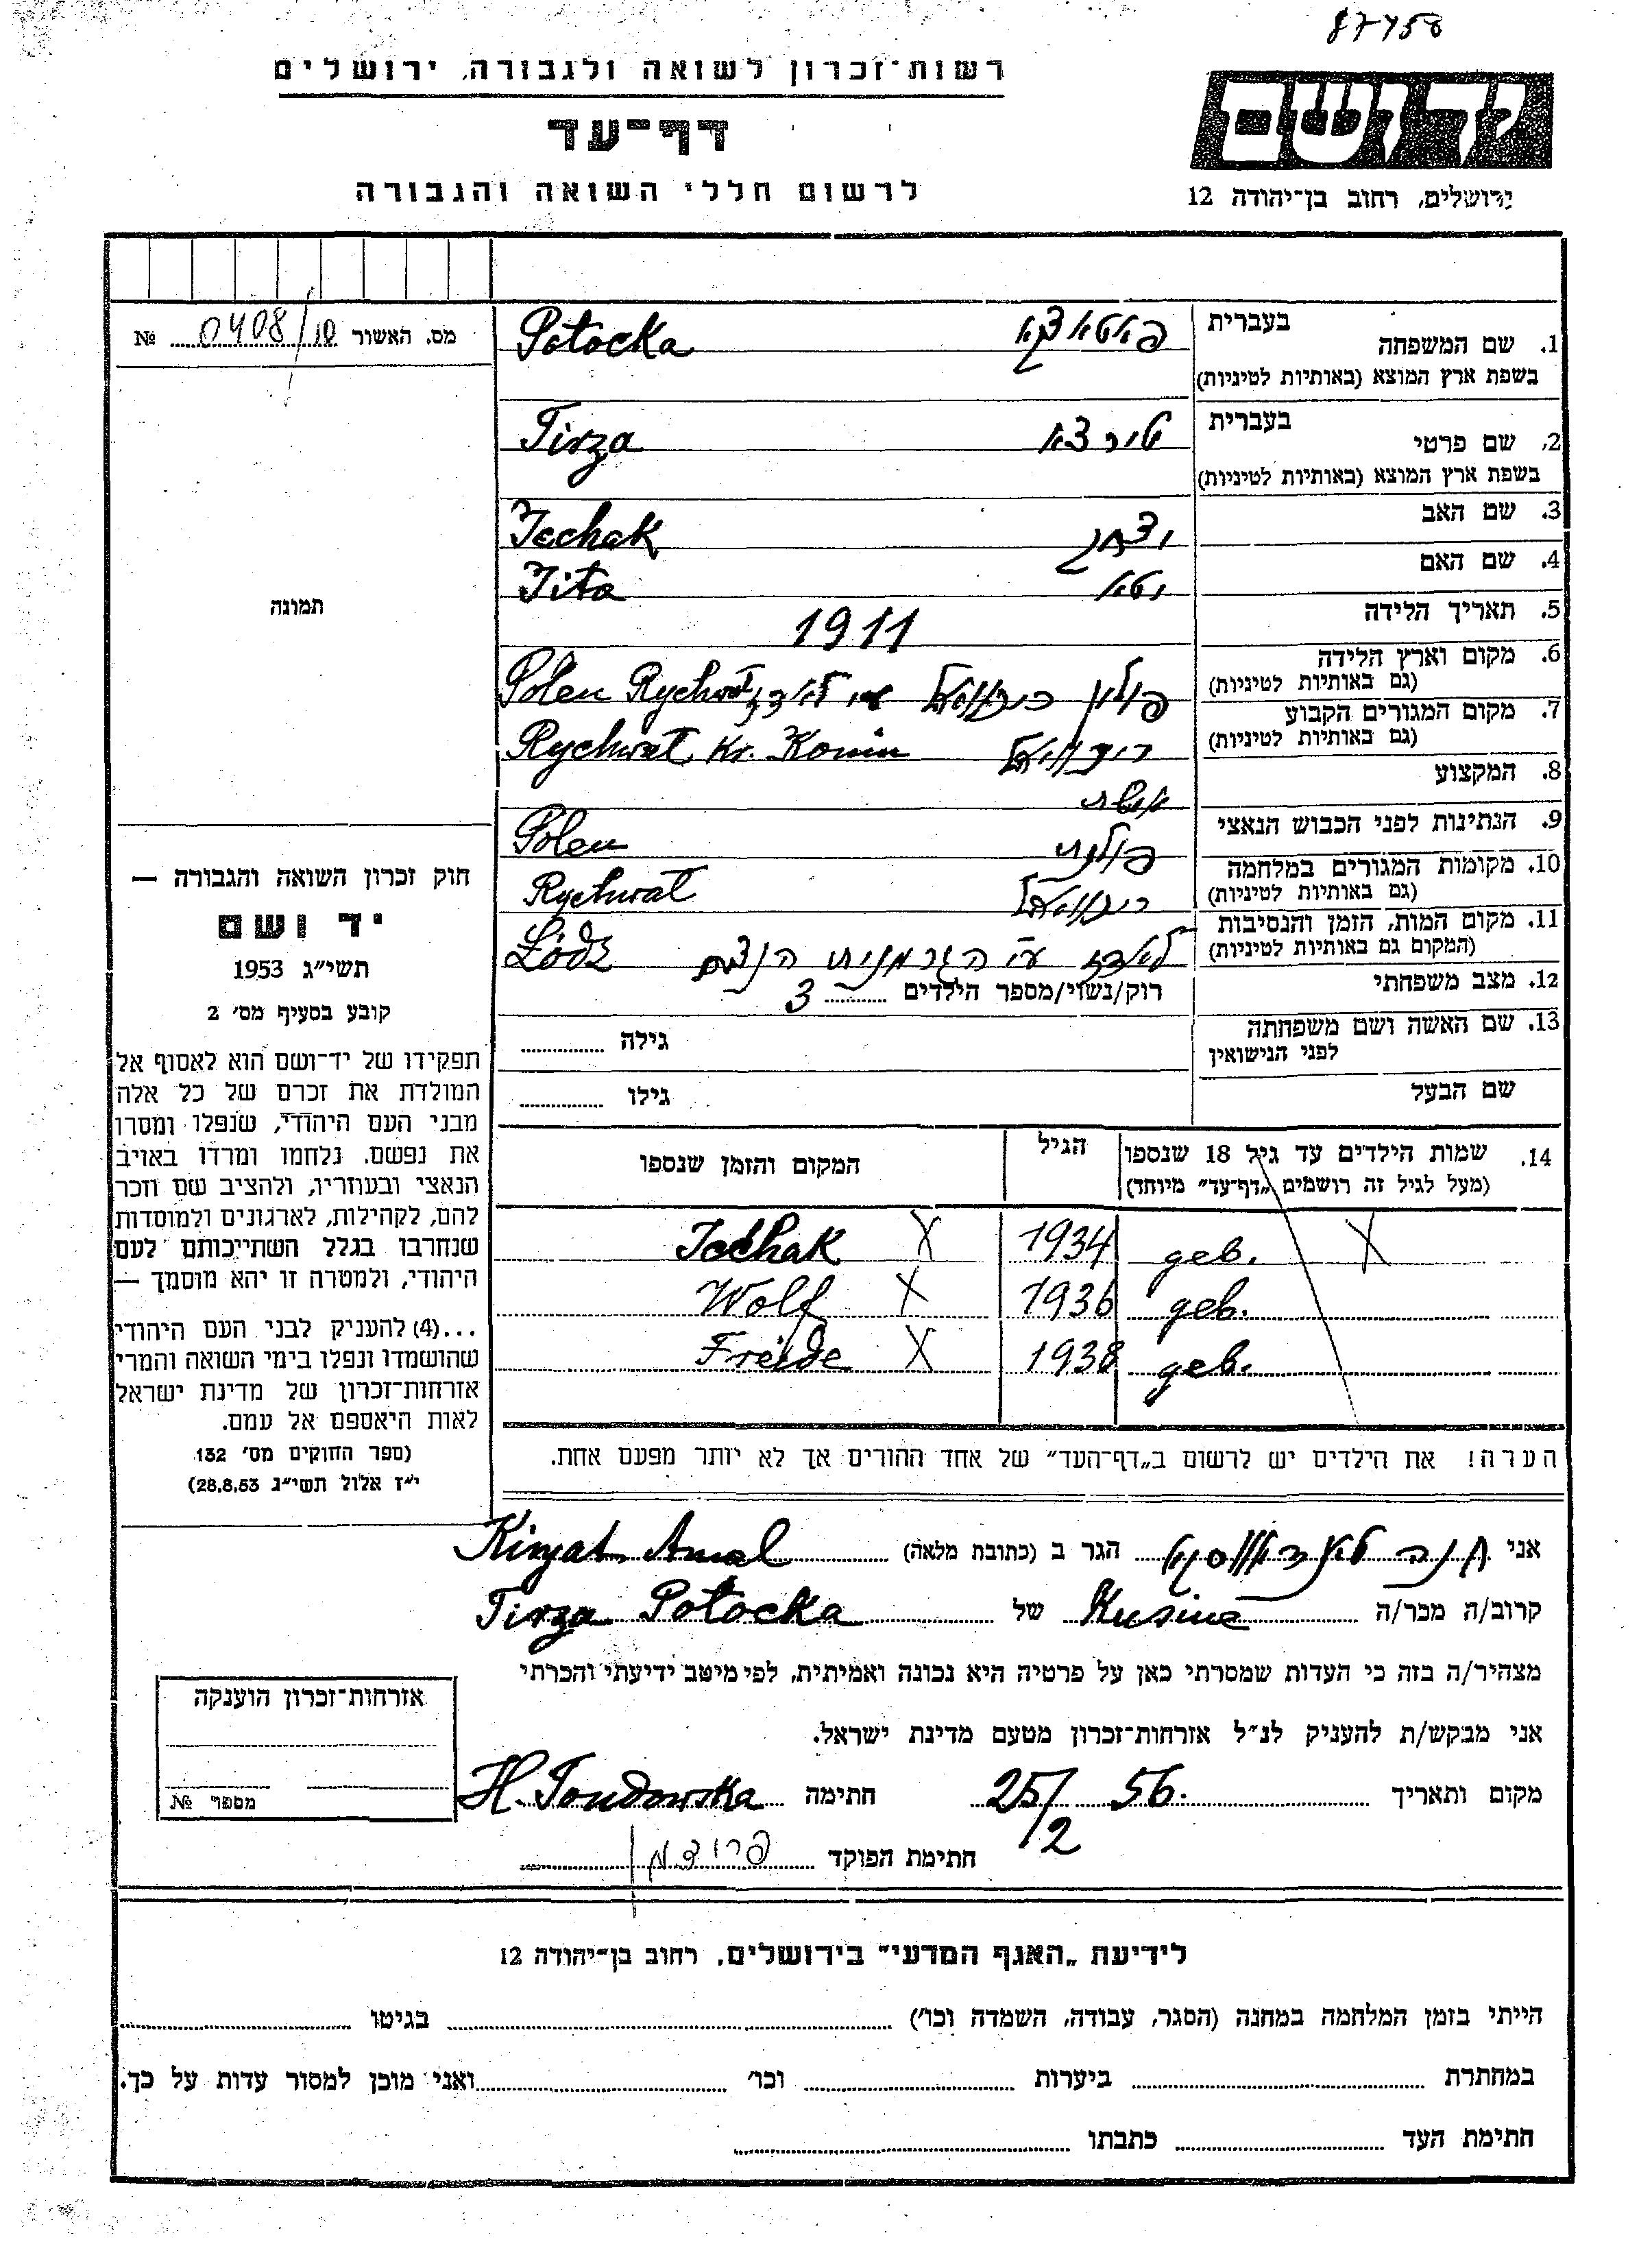 87458
רשות־זכרון לשואה ולגבורה, ירושלים
דף־עד
לרשום חללי השואה והגבורה
יד ושם
ירושלים, רחוב בן־יהודה 12
מס. האשור 0408/10 №
תמונה
1. שם המשפחה
בעברית פאטאצקא
בשפת ארץ המוצא (באותיות לטיניות) Potocka
2. שם פרטי
בעברית טירצא
בשפת ארץ המוצא (באותיות לטיניות) Tirza
3. שם האב יצחק Icchak
4. שם האם יטא Jita
5. תאריך הלידה 1911
6. מקום וארץ הלידה
(גם באותיות לטיניות) פולין Polen Rychwał
7. מקום המגורים הקבוע
(גם באותיות לטיניות) Rychwał Kr. Konin
8. המקצוע
9. הנתינות לפני הכבוש הנאצי פולנית Polen
10. מקומות המגורים במלחמה
(גם באותיות לטיניות) Rychwał
11. מקום המות, הזמן והנסיבות
(המקום גם באותיות לטיניות) לאדז ע״י הגרמנים הנצים Łódz
12. מצב משפחתי רוק/נשוי/מספר הילדים 3
13. שם האשה ושם משפחתה
לפני הנישואין גילה
שם הבעל גילו
14. שמות הילדים עד גיל 18 שנספו הגיל המקום והזמן שנספו
(מעל לגיל זה רושמים „דף־עד״ מיוחד)
X geb. 1934 X Icchak
geb. 1936 X Wolf
geb. 1938 X Freide
הערה! את הילדים יש לרשום ב„דף־העד״ של אחד ההורים אך לא יותר מפעם אחת.
חוק זכרון השואה והגבורה —
יד ושם
תשי״ג 1953
קובע בסעיף מס׳ 2
תפקידו של יד־ושם הוא לאסוף אל
המולדת את זכרם של כל אלה
מבני העם היהודי, שנפלו ומסרו
את נפשם, נלחמו ומרדו באויב
הנאצי ובעוזריו, ולהציב שם וזכר
להם, לקהילות, לארגונים ולמוסדות
שנחרבו בגלל השתייכותם לעם
היהודי, ולמטרה זו יהא מוסמך —
...(4) להעניק לבני העם היהודי
שהושמדו ונפלו בימי השואה והמרי
אזרחות־זכרון של מדינת ישראל
לאות היאספם אל עמם.
(ספר החוקים מס׳ 132
י״ז אלול תשי״ג 28.8.53)
אני חנה הגר ב (כתובת מלאה) Kirjat Amal
קרוב/ה מכר/ה Kusine של Tirza Potocka
מצהיר/ה בזה כי העדות שמסרתי כאן על פרטיה היא נכונה ואמיתית, לפי מיטב ידיעתי והכרתי
אני מבקש/ת להעניק לנ״ל אזרחות־זכרון מטעם מדינת ישראל.
מקום ותאריך 25/2 56. חתימה H. Tondowska
חתימת הפוקד
אזרחות־זכרון הוענקה
מספר №
לידיעת „האגף המדעי״ בירושלים, רחוב בן־יהודה 12
הייתי בזמן המלחמה במחנה (הסגר, עבודה, השמדה וכו׳) בגיטו
במחתרת ביערות וכו׳ ואני מוכן למסור עדות על כך.
חתימת העד כתבתו